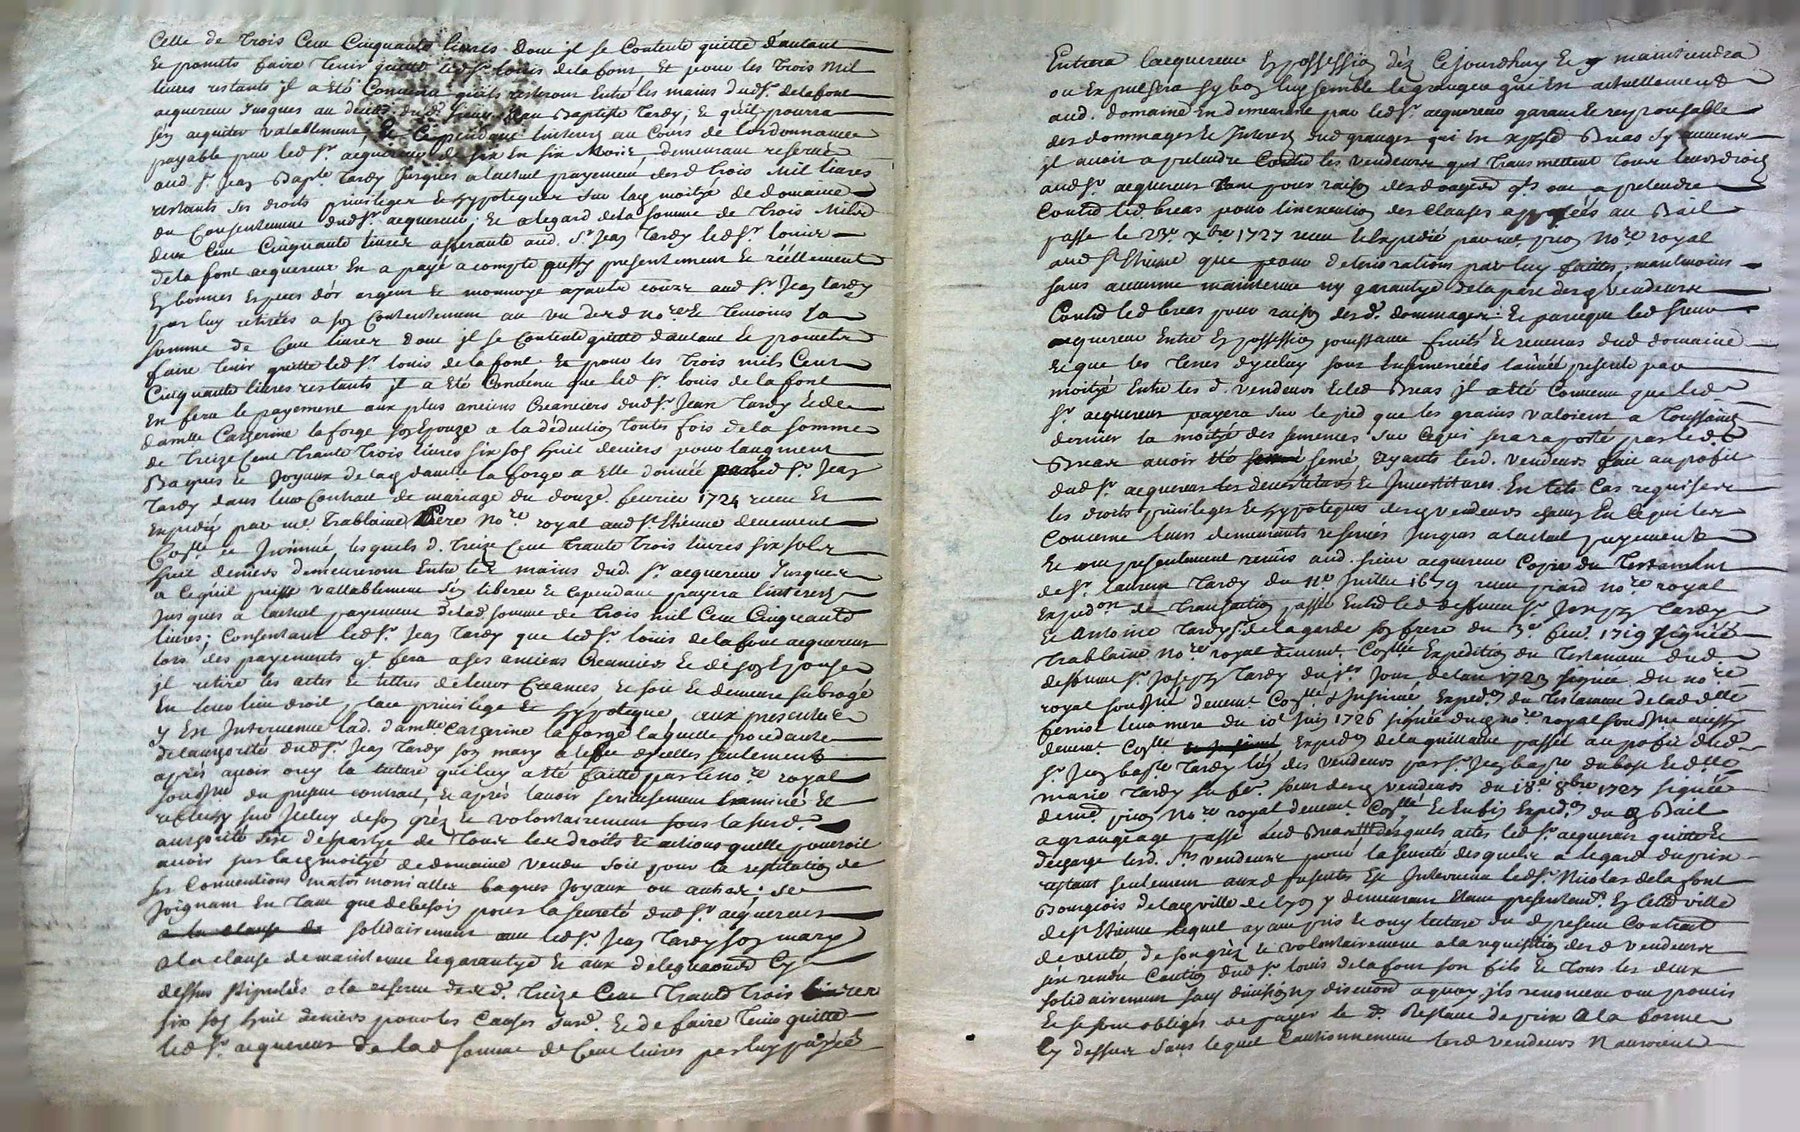 Celle de Trois Cent Cinquante livres dont jl se Contente quitte d'autant
Et promets faire tenir quitte led sr. louis delafont Et pour les Trois Mil
livres restants jl a été Convenu qu'ils resteront Entre les mains dud sr. delafont
acquereur Jusques au deces dud. sieur Jean Baptiste Tardy, Et qu'il pourra
s'en aquiter valablement, Et Cependant l'interets au Cours de l'ordonnance
payable par led sr. acquereur de six En six Mois, demeurant reservé
aud sr. Jean Bapte. Tardy Jusques a l'actuel payement desd Trois Mil livres
restants ses droits privileges Et hypoteques sur lad moitye de domaine
du Consentement dud sr. acquereur; Et a legard dela somme de Trois Mille
deux Cent Cinquante livres afferante aud. sr. Jean Tardy led sr. louis
dela font acquereur En a payé a compte aussy presentement Et réellement
En bonnes Especes d'or argent Et monnoye ayants cours aud sr. Jean tardy
par luy retirées a son Contentement au vu desd nore. Et Temoins la
somme de Cent livres dont jl se Contente quitte d'autant Et promet
faire tenir quitte led sr. louis de la font Et pour les Trois mil Cent
Cinquante livres restants jl a été Convenu que led sr. louis de la font
En fera le payement aux plus anciens Creanciers dud sr. Jean Tardy Et de
damlle Catherine laforge son Epouze a la déduction Toutes fois de la somme
de Treize Cent Trante Trois livres six sols huit deniers pour laugment
Bagues Et Joyaux de lad damlle. la forge a Elle donnée par led sr. Jean
Tardy dans leur Contract de mariage du douze. fevrier 1724 recu Et
Expedié par me Trablaine Pere nore. royal aud st. Etienne deuement
Collé. Et Insinué, lesquels d. Treize Cent Trante Trois livres six sols
huit deniers demeureront Entre les mains dud. sr. acquereur Jusques
a Ce qu'il puisse vallablement s'en liberer Et Cependant payera l'interets
Jusques a lactuel payement de lad somme de Trois mil Cent Cinquante
livres; Consentant led sr. Jean Tardy que led sr. louis dela font acquereur
lors des payements qu'il fera a ses anciens Creanciers Et de son Epouse
jl retire les actes Et titres deleurs Creances Et soit Et demeure subrogé
En leur lieu droit, place privilege Et hypoteque, aux presentes
y Est Intervenue lad. damlle Catherine la forge laquelle procedante
de lautorité dud sr. Jean Tardy son mary a leffet dycelles seulement
après avoir ouy la lecture qui luy a été faitte par le nore. royal
soussigné du present contract, Et après lavoir serieusement Examiné Et
reflechy sur Jceluy de son grès Et volontairement sous la susd.
authorité s'est departye de Tous les droits Et actions quelle pouroit
avoir sur lad moitye de domaine vendu soit pour la repetition de
ses Conventions matrimonialles bagues Joyaux ou autres; se
Joignant En Tant que de besoin pour la seureté dud sr. acquereur
a la clause de solidairement avec led sr. Jean Tardy son mary
a la clause de maintenue Et garantye Et aux delegations Cy
dessus stipulées a la reserve desd. Treize Cent Trante Trois livres
six sols huit deniers pour les Causes susd. Et de faire tenir quitte
led sr. acquereur de lad somme de Cent livres par luy payée
Entrera lacquereur En possession dèz Cejourdhuy Et y maintiendra
ou Expulsera sy bon luy semble le granger qui Est actuellement
aud. domaine En demeurant par led sr. acquereur garant Et responsable
des dommages Et Interets dud granger qui Est Breas sy aucuns
jl avoit a pretendre Contre les vendeurs qui Transmettent Tous leurs droits
aud sr. acquereur Tant pour raison des dommages qu'ils ont a pretendre
Contre led. breas pour linexecution des Clauses apposées au Bail
passé le 23e. xbre 1727 recu Et Expedié par me. pion nore royal
aud st Etienne que pour deteriorations par luy faittes, neantmoins
sans aucunne maintenue ny garantye de la part desd vendeurs
Contre led breas pour raison desd. dommages: Et parceque led sieur
acquereur Entre En possession jouissance fruits Et revenus dud domaine
Et que les Terres dyceluy sont Ensemencées lannée presente par
moitye Entre les d. vendeurs Et led Breas jl a été Convenu que led
sr. acquereur payera sur le pied que les grains valoient a Toussaints
dernier la moitye des semences sur Ce qui sera raporté par led
Breas avoir été semé Et ayants lesd. vendeurs fait au profit
dud sr. acquereur les devestitures Et Investitures En tels Cas requises
les droits privileges Et hypoteques desd vendeurs chacun En Ce qui les
Concerne leurs demeurants reservés Jusques a lactuel payement
Et ont presentement remis aud. sieur acquereur Copie du Testament
de sr. laurent Tardy du 11e Juillet 1679 recu piard nore royal
Expedon. de Transaction passée Entre led deffunt sr. Joseph Tardy
Et Antoine Tardy sr. de la garde son frere du 3e fevr. 1719 signée
Trablaine nore royal deuemt Collée Expedition du Testament dud
deffunt sr. Joseph Tardy du 1er Jour delan 1723 signée du nore
royal soussigné deuemt Collé & Insinué Expedon du Testament de lad dlle
ferriol leur mere du 10e Juin 1726 signée dud nore royal soussigné aussy
deuemt Collé Expedon de la quittance passée au profit dud
sr. Jean bapte Tardy lun des vendeurs par sr. Jean bapte dubost Et dlle
marie Tardy sa fe. soeur desd vendeurs du 18e 8bre 1727 signée
dud pion nore royal deuemt Collé Et Enfin Expedon du d Bail
a grangeage passé aud Breas desquels actes led sr. acquereur quitte Et
decharge lesd. srs vendeurs pour la seureté desquels a legard du prix
restant seulement auxd presentes Est Intervenu led sr. Nicolas dela font
Bourgeois de lad ville de lyon y demeurant Etant presentemt. En Cette ville
de st Etienne lequel ayant pris Et ouy lecture du d present Contract
de vente de son grès Et volontairement a la requisition desd vendeurs
s'est rendu Caution dud sr. louis dela font son fils Et Tous les deux
solidairement sans division ny discution a quoy jls renoncent ont promis
Et se sont obliges de payer le d. Restant de prix a la forme
Cy dessus sans lequel Cautionnement lesd vendeurs n'auroient